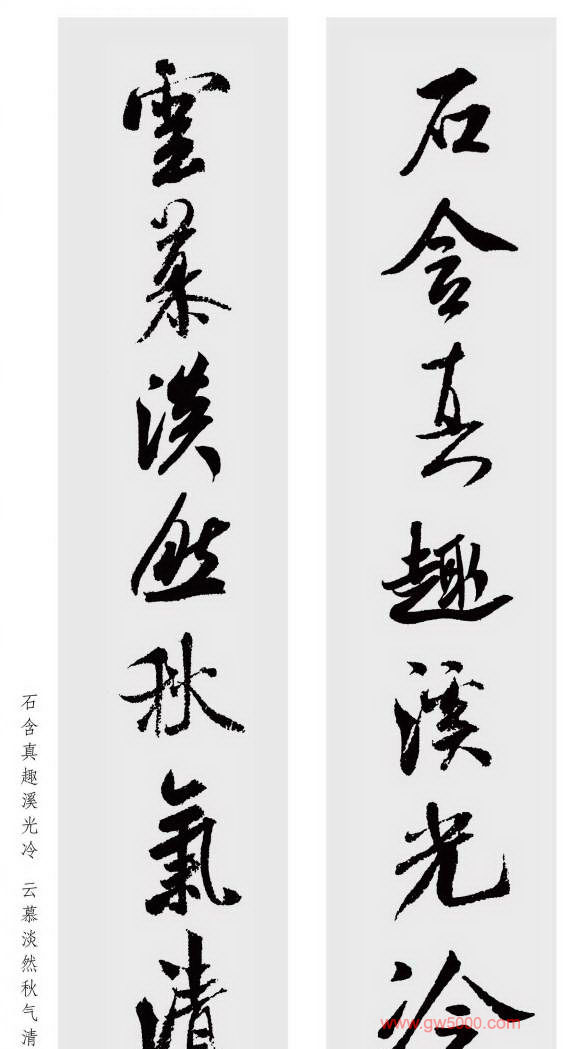 石含真趣溪光冷
雲慕淡然秋氣清
石含真趣溪光冷 云慕淡然秋气清
www.gw5000.com